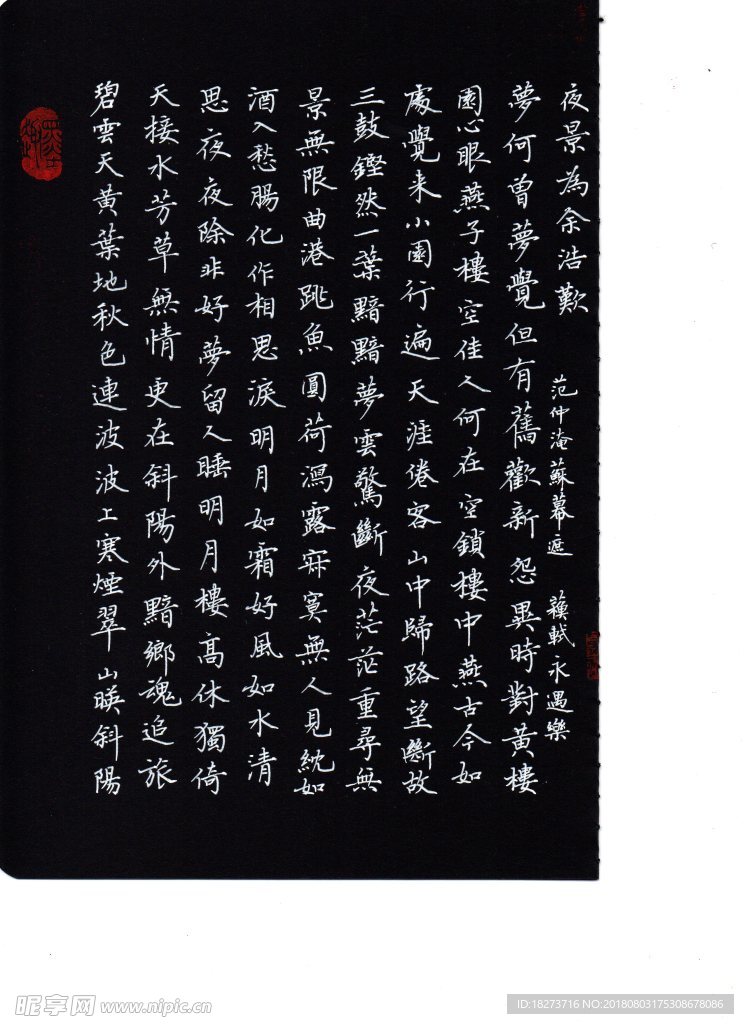 碧雲天黃葉地秋色連波波上寒煙翠山暎斜陽
天接水芳草無情更在斜陽外黯鄉魂追旅
思夜夜除非好夢留人睡明月樓高休獨倚
酒入愁腸化作相思淚明月如霜好風如水清
景無限曲港跳魚圓荷瀉露寂寞無人見紞如
三鼓鏗然一葉黯黯夢雲驚斷夜茫茫重尋無
處覺来小園行遍天涯倦客山中歸路望斷故
園心眼燕子樓空佳人何在空鎖樓中燕古今如
夢何曾夢覺但有舊歡新怨異時對黃樓
夜景為余浩歎
范仲淹蘇幕遮 蘇軾永遇樂
昵享网 www.nipic.cn
ID:18273716 NO:20180803175308678086